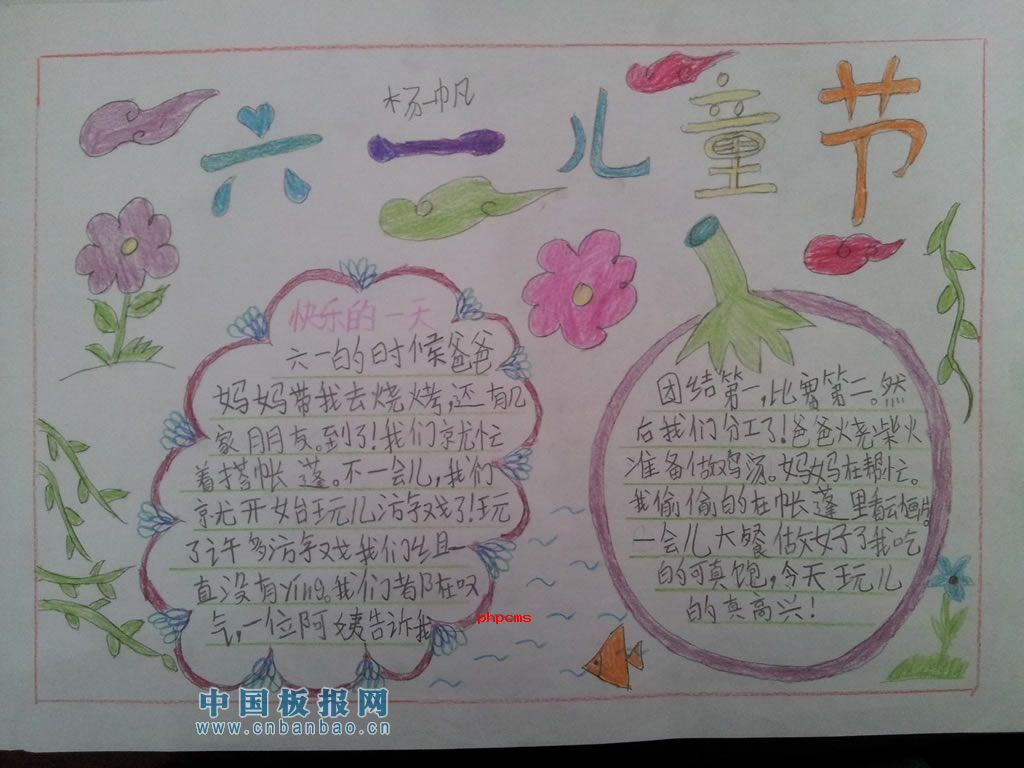 杨帆
六一儿童节
快乐的一天
六一的时候爸爸
妈妈带我去烧烤,还有几
家朋友。到了!我们就忙
着搭帐蓬。不一会儿,我们
就开始玩儿游戏了!玩
了许多游戏我们组一
直没有ying。我们都在叹
气,一位阿姨告诉我
团结第一,比赛第二。然
后我们分工了!爸爸烧柴火
准备做鸡汤。妈妈在帮忙。
我偷偷的在帐蓬里看动画片。
一会儿大餐做好了我吃
的可真饱,今天玩儿
的真高兴!
phpcms
中国板报网
www.cnbanbao.cn